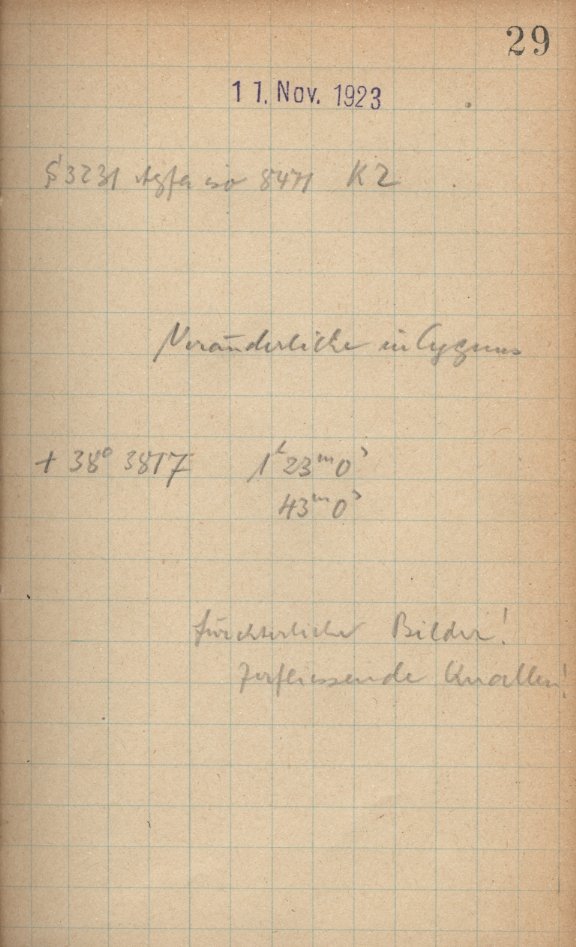 29
11. Nov. 1923
S 3231 Agfa iso 8471 K2
Veränderliche in Cygnus
+ 38° 3817 1ʰ 23ᵐ 0ˢ
43ᵐ 0ˢ
fürchterliche Bilder!
Zerfliessende Knollen!